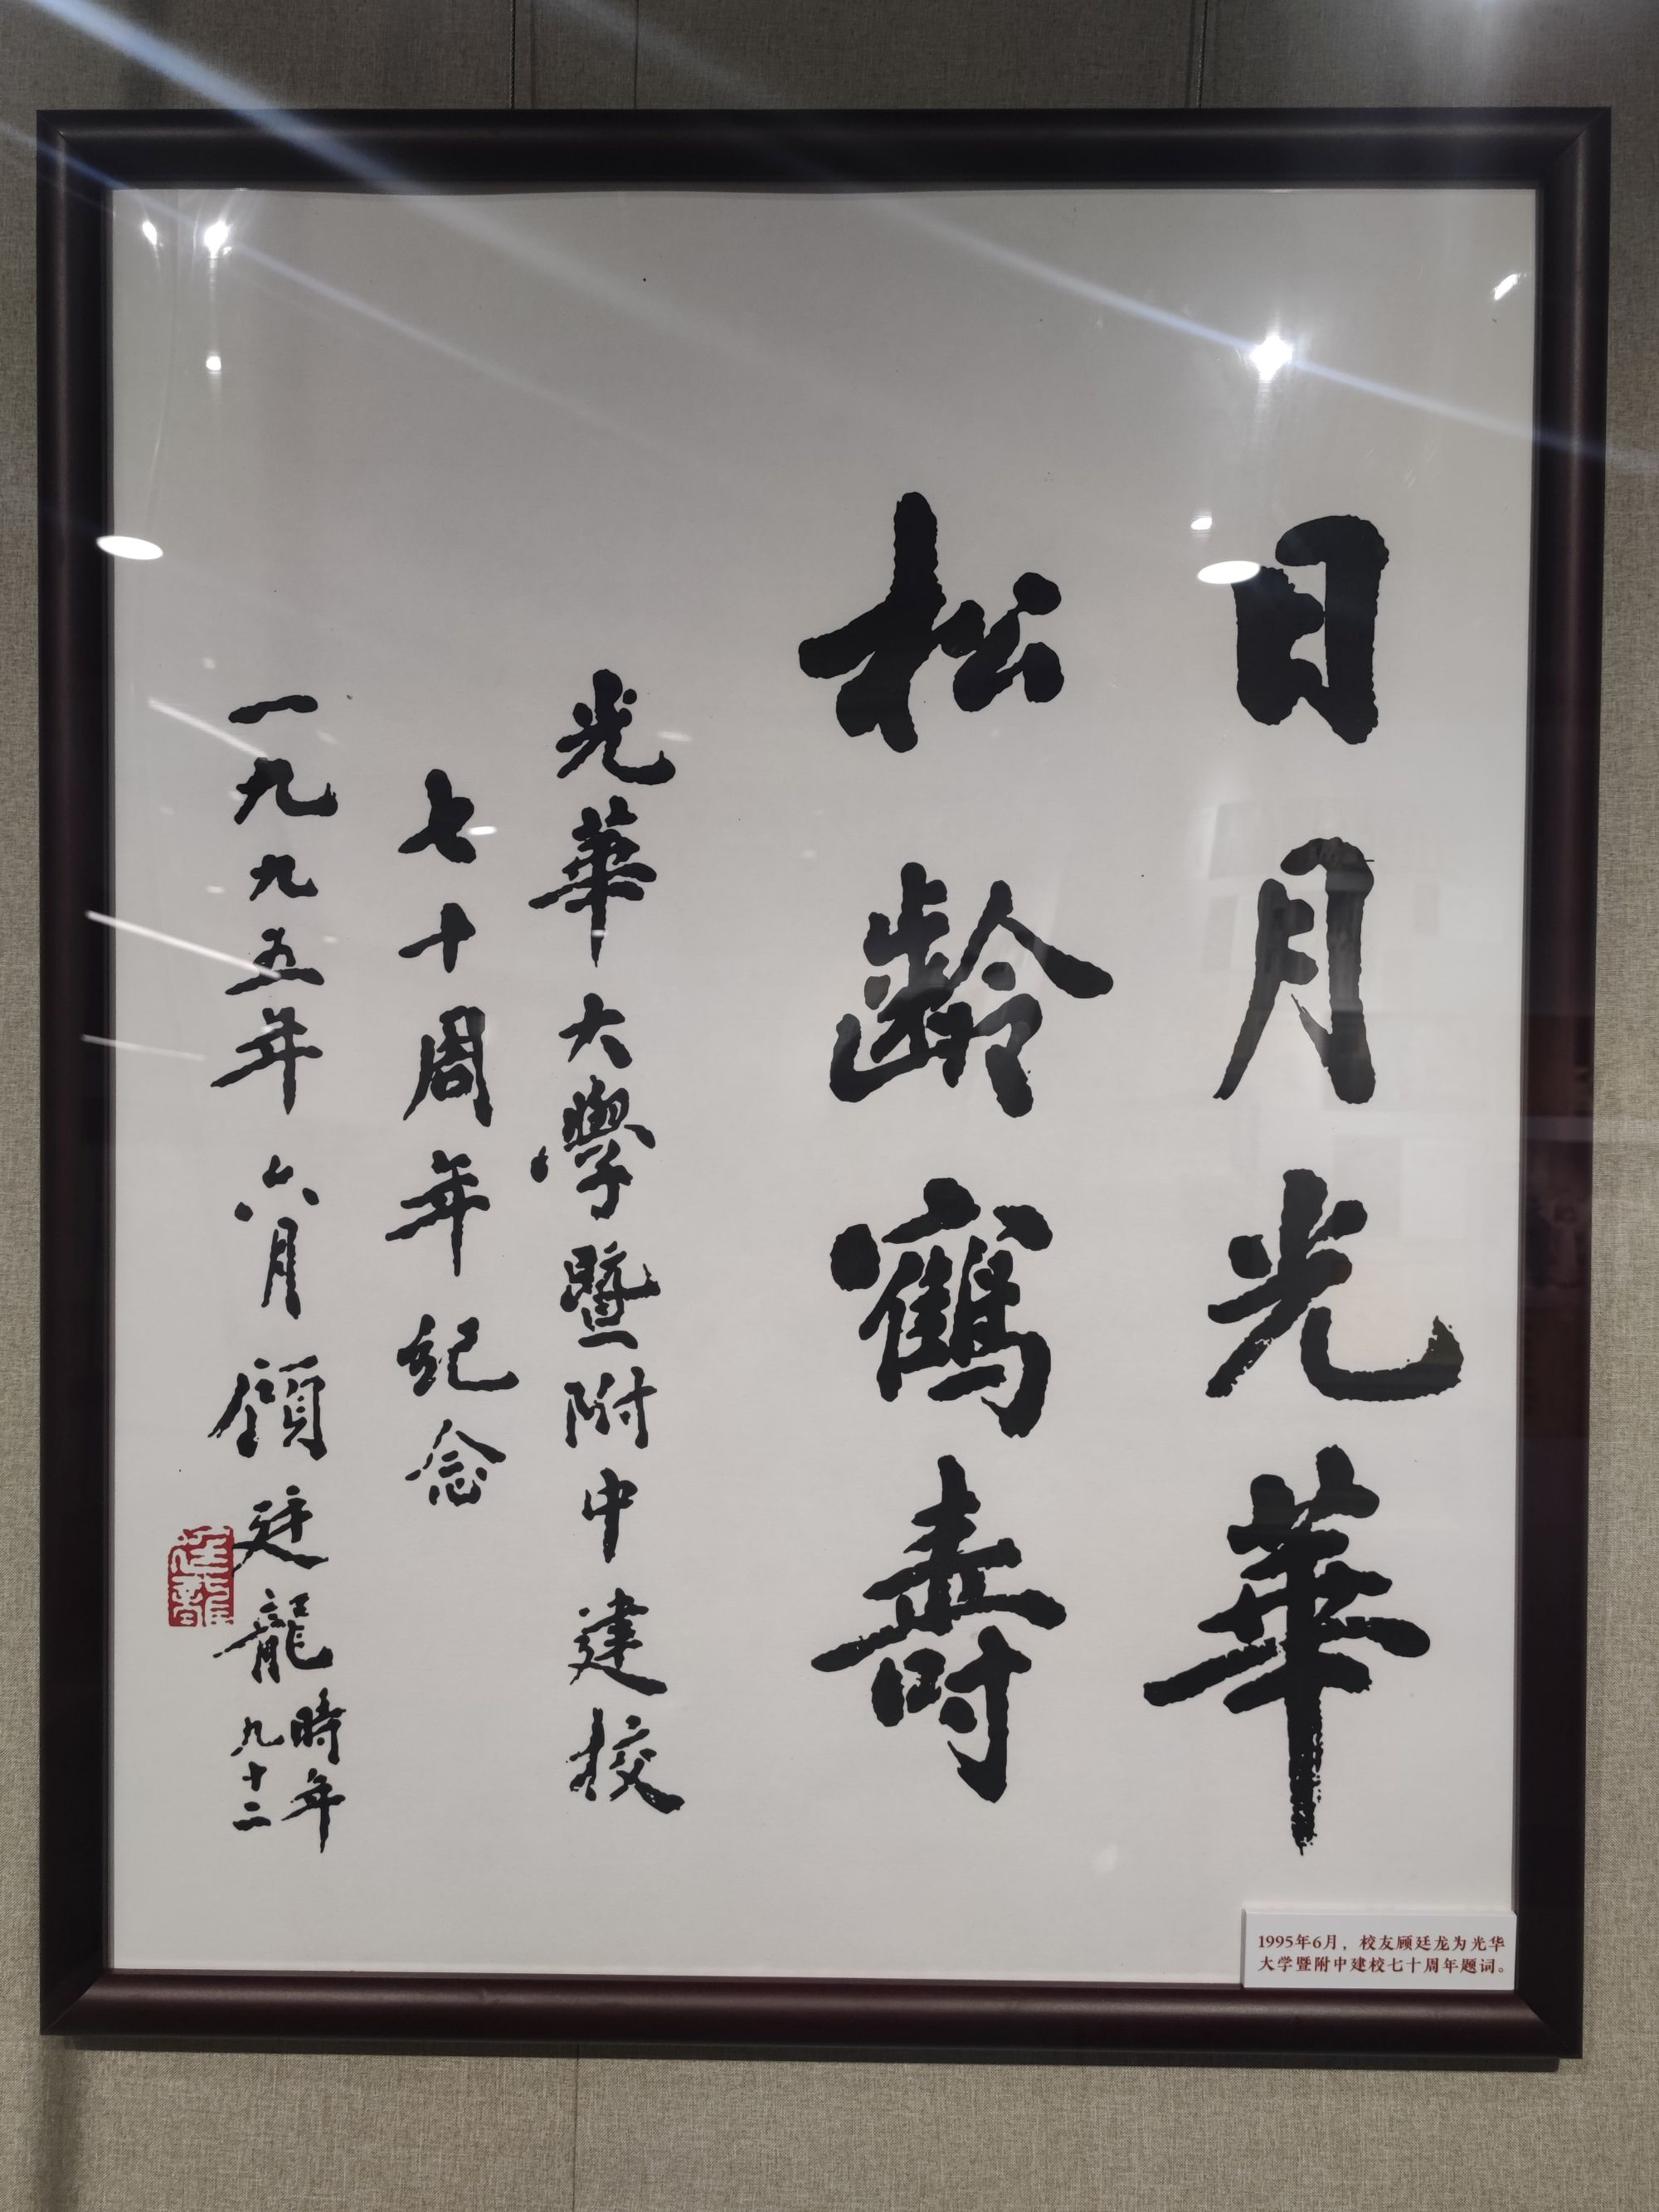 日月光華
松齡鶴壽
光華大學暨附中建校
七十周年紀念
一九九五年六月顧廷龍時年
九十二
廷龍
1995年6月，校友顾廷龙为光华
大学暨附中建校七十周年题词。